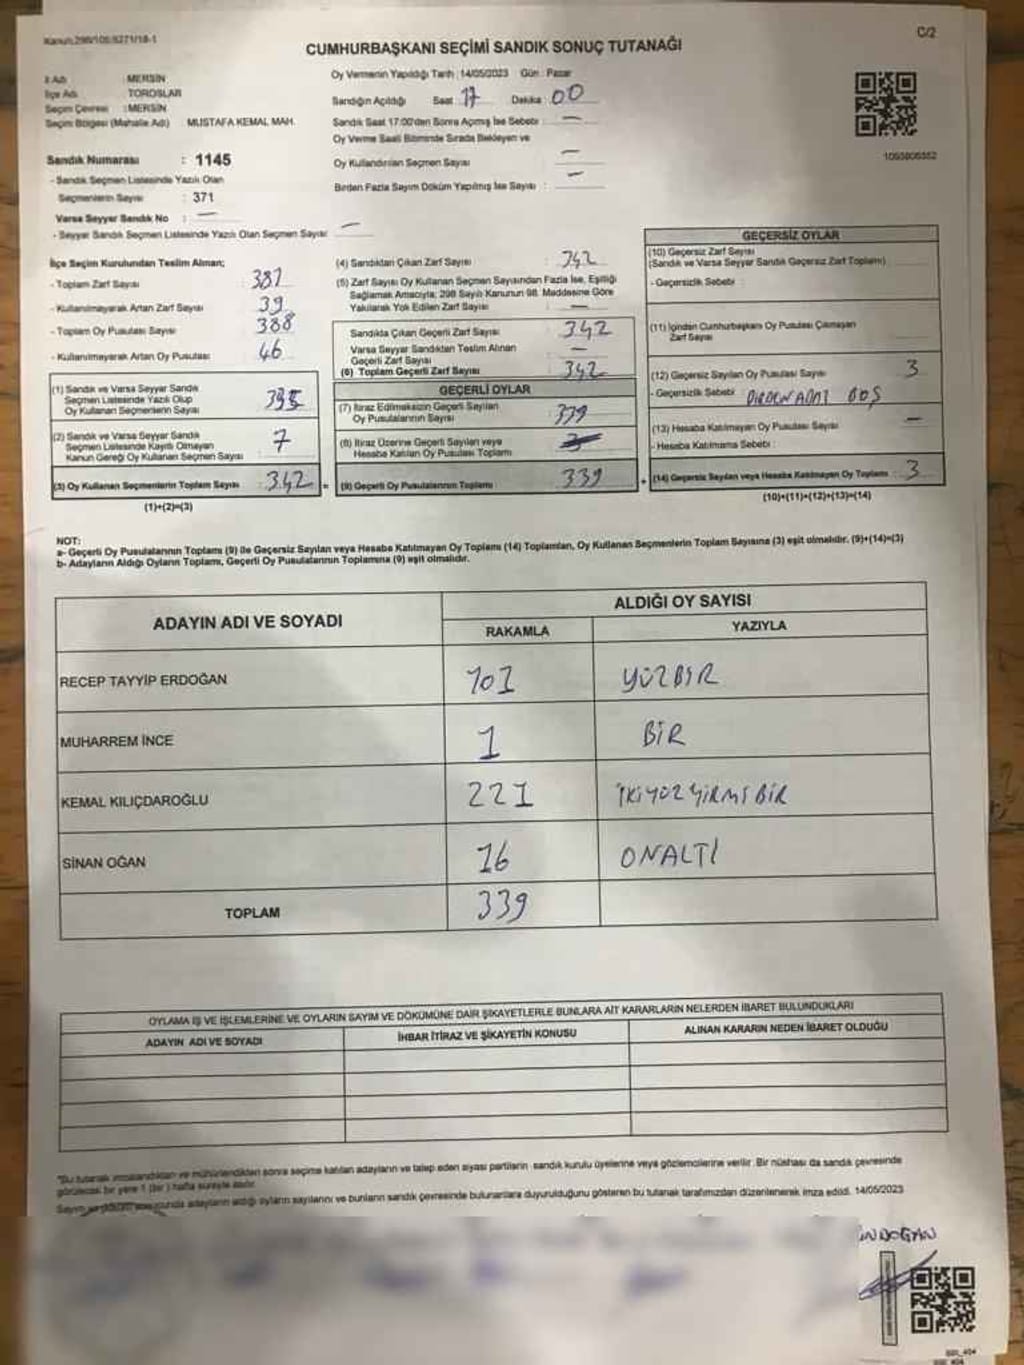 Kanun:298/105:6271/18-1
C/2
CUMHURBAŞKANI SEÇİMİ SANDIK SONUÇ TUTANAĞI
İl Adı : MERSİN
İlçe Adı : TOROSLAR
Seçim Çevresi : MERSİN
Seçim Bölgesi (Mahalle Adı) MUSTAFA KEMAL MAH.
Sandık Numarası : 1145
- Sandık Seçmen Listesinde Yazılı Olan
Seçmenlerin Sayısı : 371
Varsa Seyyar Sandık No : —
- Seyyar Sandık Seçmen Listesinde Yazılı Olan Seçmen Sayısı : —
Oy Vermenin Yapıldığı Tarih : 14/05/2023 Gün : Pazar
Sandığın Açıldığı Saat 17 Dakika 00
Sandık Saat 17:00'den Sonra Açılmış İse Sebebi : —
Oy Verme Saati Bitiminde Sırada Bekleyen ve
Oy Kullandırılan Seçmen Sayısı —
Birden Fazla Sayım Döküm Yapılmış İse Sayısı : —
1093806352
İlçe Seçim Kurulundan Teslim Alınan;
- Toplam Zarf Sayısı : 381
- Kullanılmayarak Artan Zarf Sayısı : 39
- Toplam Oy Pusulası Sayısı : 388
- Kullanılmayarak Artan Oy Pusulası : 46
(1) Sandık ve Varsa Seyyar Sandık
Seçmen Listesinde Yazılı Olup
Oy Kullanan Seçmenlerin Sayısı : 335
(2) Sandık ve Varsa Seyyar Sandık
Seçmen Listesinde Kayıtlı Olmayan
Kanun Gereği Oy Kullanan Seçmen Sayısı : 7
(3) Oy Kullanan Seçmenlerin Toplam Sayısı : 342
(1)+(2)=(3)
(4) Sandıktan Çıkan Zarf Sayısı : 342
(5) Zarf Sayısı Oy Kullanan Seçmen Sayısından Fazla İse, Eşitliği
Sağlamak Amacıyla; 298 Sayılı Kanunun 98. Maddesine Göre
Yakılarak Yok Edilen Zarf Sayısı : —
Sandıkta Çıkan Geçerli Zarf Sayısı : 342
Varsa Seyyar Sandıktan Teslim Alınan
Geçerli Zarf Sayısı : —
(6) Toplam Geçerli Zarf Sayısı : 342
GEÇERLİ OYLAR
(7) İtiraz Edilmeksizin Geçerli Sayılan
Oy Pusulalarının Sayısı : 339
(8) İtiraz Üzerine Geçerli Sayılan veya
Hesaba Katılan Oy Pusulası Toplamı :
(9) Geçerli Oy Pusulalarının Toplamı : 339
GEÇERSİZ OYLAR
(10) Geçersiz Zarf Sayısı
(Sandık ve Varsa Seyyar Sandık Geçersiz Zarf Toplamı) :
- Geçersizlik Sebebi :
(11) İçinden Cumhurbaşkanı Oy Pusulası Çıkmayan
Zarf Sayısı
(12) Geçersiz Sayılan Oy Pusulası Sayısı : 3
- Geçersizlik Sebebi : BOŞ
(13) Hesaba Katılmayan Oy Pusulası Sayısı : —
- Hesaba Katılmama Sebebi :
(14) Geçersiz Sayılan veya Hesaba Katılmayan Oy Toplamı : 3
(10)+(11)+(12)+(13)=(14)
NOT:
a- Geçerli Oy Pusulalarının Toplamı (9) ile Geçersiz Sayılan veya Hesaba Katılmayan Oy Toplamı (14) Toplamları, Oy Kullanan Seçmenlerin Toplam Sayısına (3) eşit olmalıdır. (9)+(14)=(3)
b- Adayların Aldığı Oyların Toplamı, Geçerli Oy Pusulalarının Toplamına (9) eşit olmalıdır.
ADAYIN ADI VE SOYADI
ALDIĞI OY SAYISI
RAKAMLA YAZIYLA
RECEP TAYYİP ERDOĞAN 101 YÜZBİR
MUHARREM İNCE 1 BİR
KEMAL KILIÇDAROĞLU 221 İKİYÜZYİRMİBİR
SİNAN OĞAN 16 ONALTI
TOPLAM 339
OYLAMA İŞ VE İŞLEMLERİNE VE OYLARIN SAYIM VE DÖKÜMÜNE DAİR ŞİKAYETLERLE BUNLARA AİT KARARLARIN NELERDEN İBARET BULUNDUKLARI
ADAYIN ADI VE SOYADI İHBAR İTİRAZ VE ŞİKAYETİN KONUSU ALINAN KARARIN NEDEN İBARET OLDUĞU
*Bu tutanak imzalandıktan ve mühürlendikten sonra seçime katılan adayların ve talep eden siyasi partilerin sandık kurulu üyelerine veya gözlemcilerine verilir. Bir nüshası da sandık çevresinde
görülecek bir yere 1 (bir) hafta süreyle asılır.
adayların aldığı oyların sayılarını ve bunların sandık çevresinde bulunanlara duyurulduğunu gösteren bu tutanak tarafımızdan düzenlenerek imza edildi. 14/05/2023